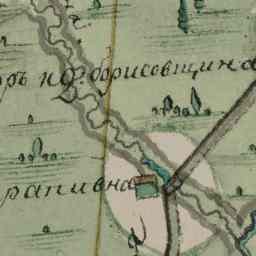 оръ н Ф борисовщина
рапивна